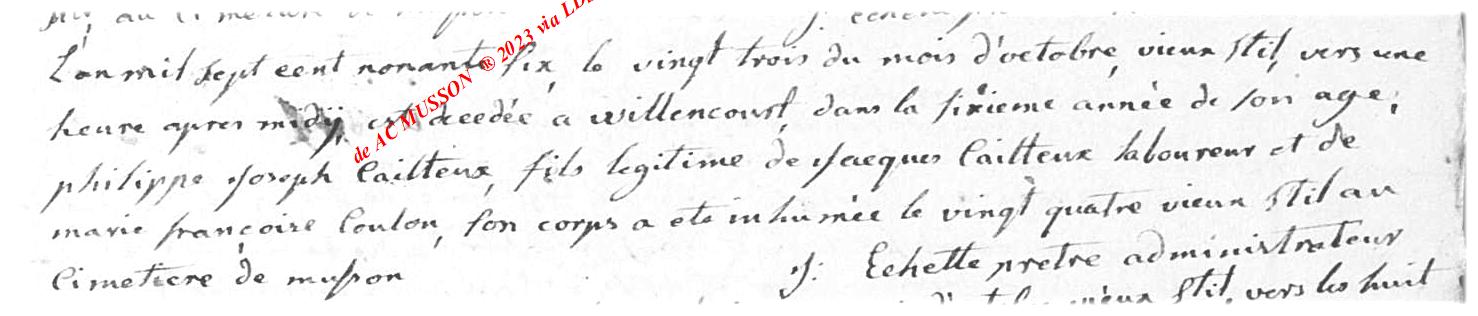 au Cimetiere de musson
L'an mil sept cent nonante six, le vingt trois du mois d'octobre, vieux stil, vers une
heure apres midÿ, est decedée a willencourt, dans la sixieme année de son age,
philippe Joseph Cailteux, fils legitime de Jacques Cailteux laboureur et de
marie françoise Coulon, son corps a eté inhumée le vingt quatre vieux stil au
Cimetiere de musson J: Echette pretre administrateur
vieux stil, vers les huit
de AC MUSSON ® 2023 via